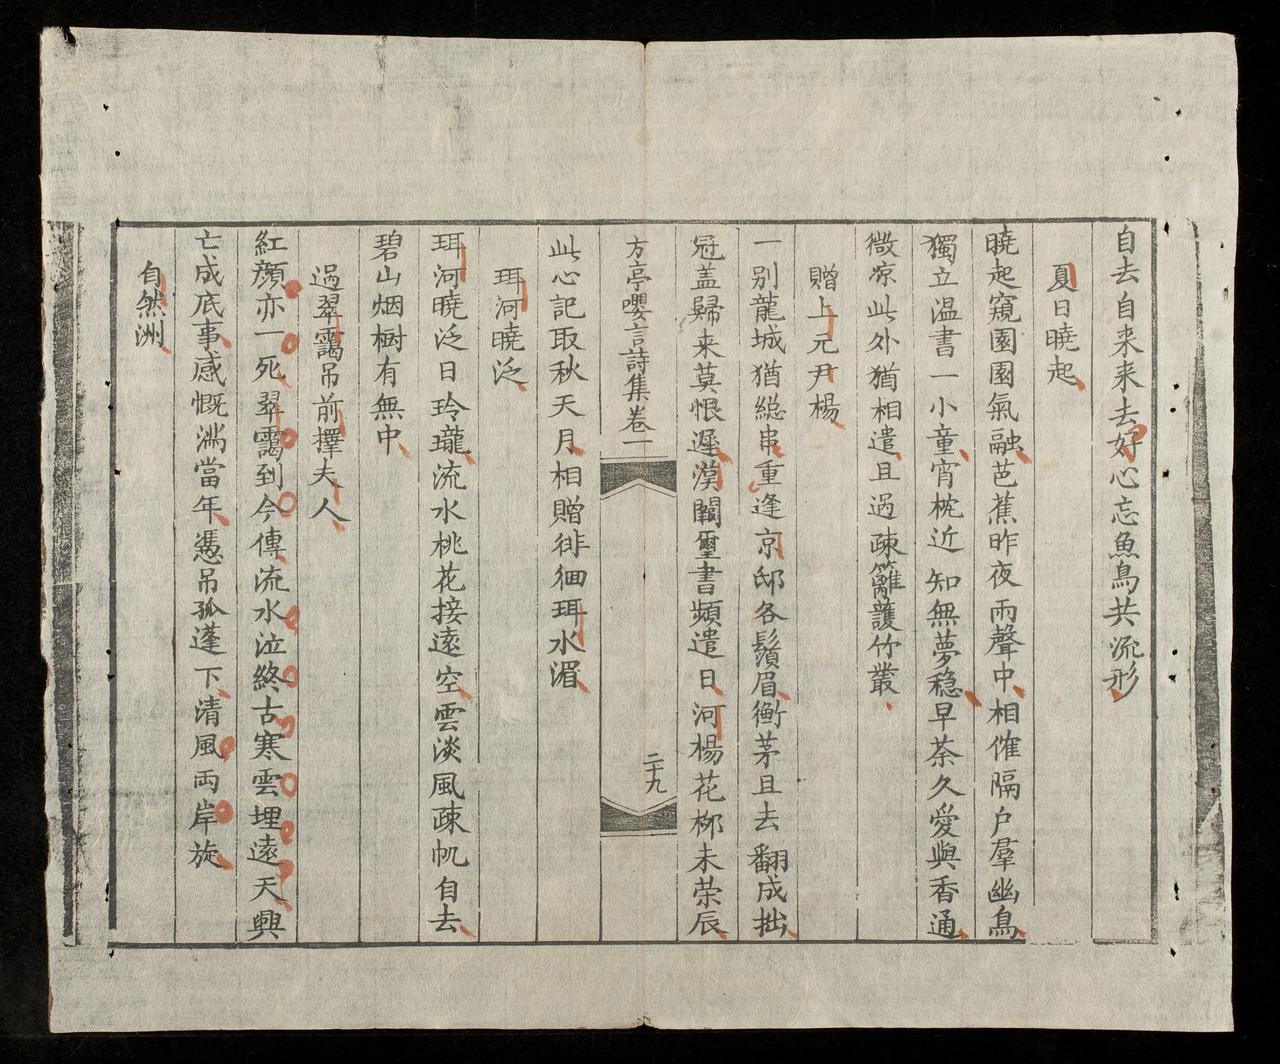 自去自来来去好心忘魚鳥共流形
夏日曉起
曉起窺園園氣融芭蕉昨夜雨聲中相催隔户羣幽鳥
獨立温書一小童宵枕近知無夢穏早茶久愛與香通
微凉此外猶相遣且過疎籬護竹叢
贈上元尹楊
一别龍城猶緦串重逢京邸各鬚眉衡茅且去翻成拙
冠盖歸来莫恨遲漠闗璽書頻遣日河楊花栁未荣辰
方亭嚶言詩集卷一
二十九
此心記取秋天月相贈徘徊珥水湄
珥河曉泛
珥河曉泛日玲瓏流水桃花接遠空雲淡風疎帆自去
碧山烟樹有無中
過翠靄吊前擇夫人
紅顏亦一死翠靄到今傳流水泣終古寒雲埋遠天興
亡成底事感慨滿當年憑吊孤蓬下清風两岸旋
自然洲